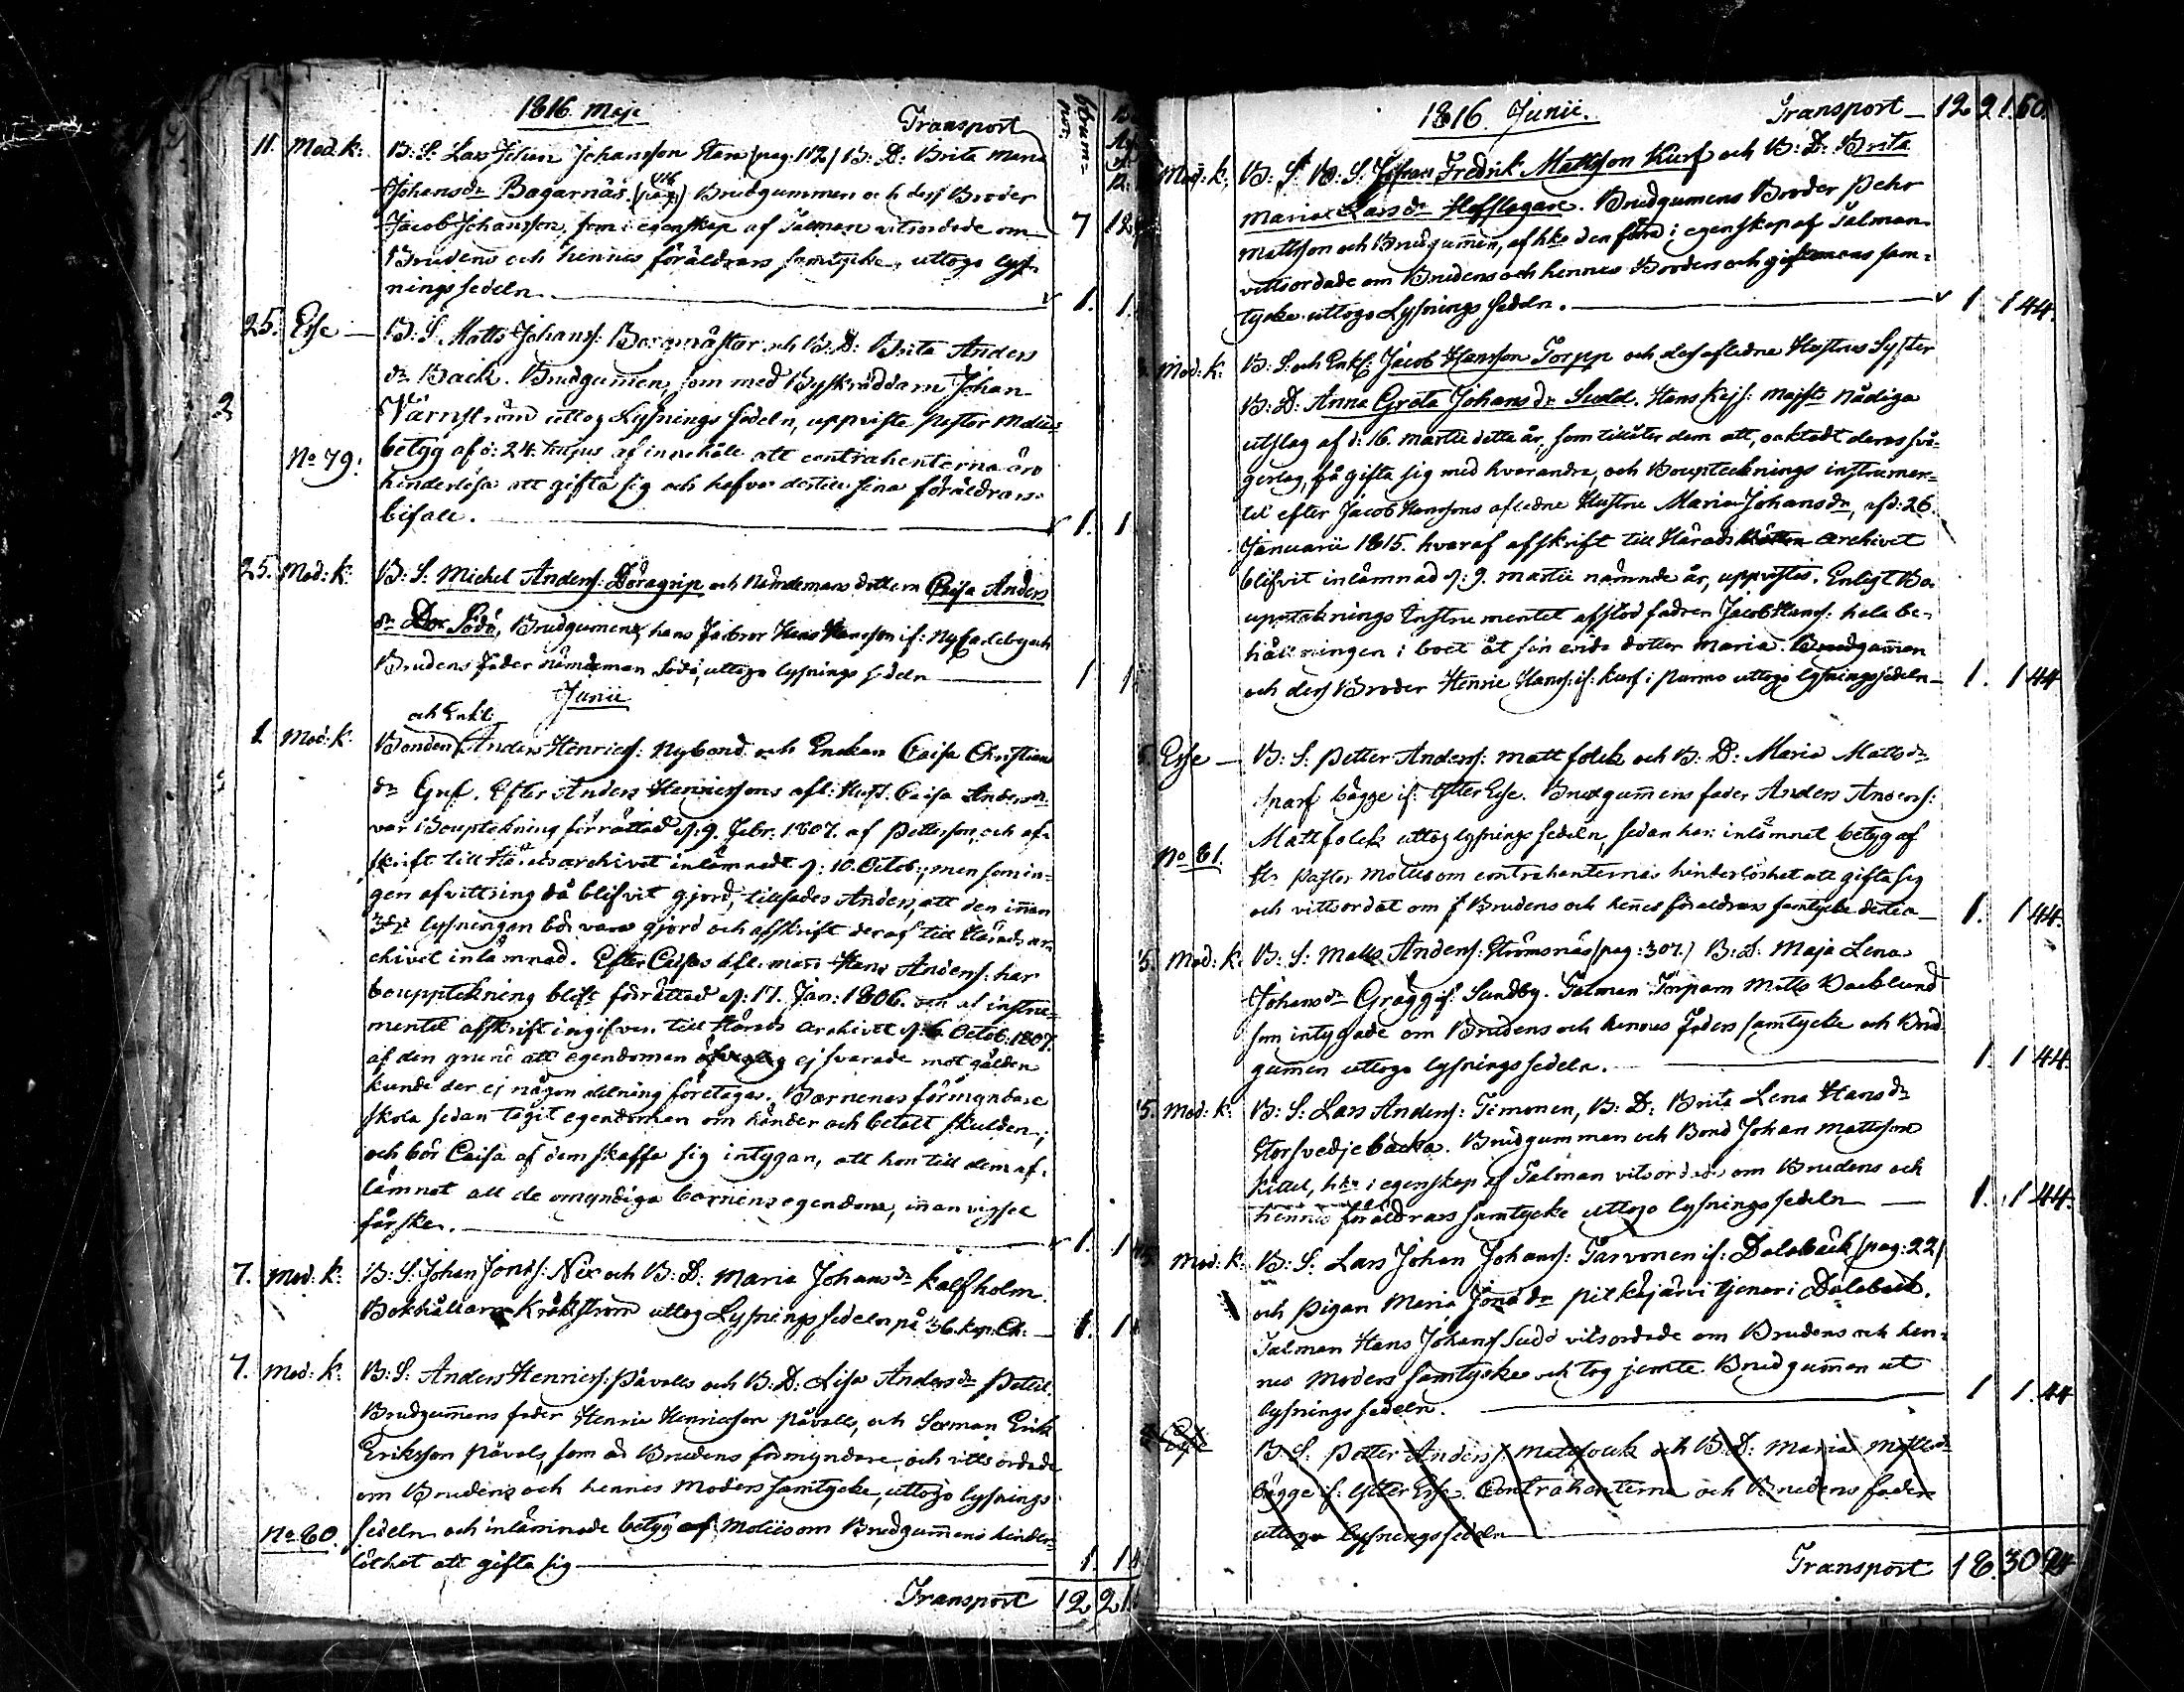 1816 Maji
Transport
11. Mod: k: B: S: Lars Johan Johansson Stara /pag: 112/ B: D: Brita Maria
Johans dr Bagarnäs. Brudgummen och dess Broder
Jacob Johansson, som i egenskap af Talman vitsordade om 7
Brudens och hennes föräldrars samtycke, uttogo lys-
nings sedeln. 1. 1.
25. Esse B: S: Matts Johanss: och B: D: Brita Anders
dr Back. Brudgummen, som med Byskräddarn Johan
Wärnström uttog Lysnings sedeln, uppviste Pastor
No 79. betyg af d: 24 hujus af innehåll att contrahenterna äro
hinderlösa att gifta sig och hafva dertill sina föräldrars
bifall. 1. 1
25. Mod: k: B: S: Michel Anderss: Döragrip och Nämdemans dottern Caisa Anders
dr Sådö, Brudgumen, hans farbror Hans Hansson if: NyCarleby och
Brudens fader Nämdeman Sådö, uttogo lysnings sedeln 1 1
Junii
och Enkl:
1. Mod: k: Bonden Anders Henricss: Nybond och Enckan Caisa Christian
dr Gref. Efter Anders Henricssons afl: Hust: Caisa Anders dr
var Bouptekning förrättad d: 9. Febr: 1807. af Pettersson, och af-
skrift till Härads archivet inlämnadt d: 10. Octob:, men som in-
gen afvittring då blifvit gjord, tillsades Anders, att den innan
3dje lysningen bör vara gjord och afskrift deraf till Härads ar-
chivet inlämnad. Efter Caisas afl: man Hans Anderss: har
bouppteckning blifvit förrättad d: 17. Jan: 1806. instru-
mentet afskrift ingifven till Härads Archivet d: 6 Octob: 1807.
af den grund att egendomen ej svarade mot gälden
kunde der ej någon delning företagas. Barnenes förmyndare
skola sedan tagit egendomen om händer och betalt skulden;
och bör Caisa af dem skaffa sig intygan, att hon till dem af-
lämnat all de omyndiga barnens egendom, innan vigsel
får ske. 1. 1
7. Mod: k: B: S: Johan Jonss: Nix och B: D: Maria Johans dr Kalfholm.
Bokhållarn Kråkström uttog Lysnings sedeln på 36. kop: Ch: 1. 1
7. Mod: k: B: S: Anders Henricss: Påvals och B: D: Lisa Anders dr
Brudgummens fader Henric Henricsson Påvals, och Sexman Erik
Eriksson Påvals, som är Brudens förmyndare, och vitsordade
om Brudens och hennes Moders samtycke, uttogo lysnings
No 80. sedeln och inlämnade betyg af om Brudgummens hinder-
löshet att gifta sig 1. 1
Transport 12 21
1816 Junii. Transport 12 21.60.
Mod: k: B: S: Johan Fredrik Mattsson Kurf och B: D: Brita
Maria Lars dr Hofslagare. Brudgumens Broder Pehr
Mattsson och Brudgummen, af hka den förra i egenskap af Talman
vitsordade om Brudens och hennes Broders och giftomans sam-
tycke uttogo Lysnings sedeln. 1 1 44.
Mod: k: B: S: och Enkl: Jacob Hansson Torpp och dess afledne Hustrus Syster
B: D: Anna Greta Johans dr Sudd. Hans Kejs: Majts Nådiga
utslag af d: 16. Martii detta år, som tillåter dem att, oaktadt deras svå-
gerlag, få gifta sig med hvarandra, och Bouptecknings instrumen-
tet efter Jacob Hanssons afledne Hustru Maria Johans dr, af d: 26.
Januarii 1815. hvaraf afskrift till Härads archivet
blifvit inlämnad d: 9. Martii nämnde år, uppvistes. Enligt Bo-
upteknings Instrumentet afstod fadren Jacob Hanss: hela be-
hållningen i boet åt sin enda dotter Maria. Brudgummen
och dess Broder Henric Hanss: if: Kurf i Purmo uttogo lysnings sedeln 1. 1 44
Esse B: S: Petter Anderss: Mattfolck och B: D: Maria Matts dr
Sparf bägge if: Ytter Esse. Brudgummens fader Anders Anderss:
Mattfolck uttog lysnings sedeln, sedan han inlämnat betyg af
No 81. Hr Pastor om contrahenternas hinderlöshet att gifta sig
och vittsordat om Brudens och hennes föräldrars samtycke dertill 1. 1 44.
15. Mod: k: B: S: Matts Anderss: Strömsnäs /pag: 307./ B: D: Maja Lena
Johans dr Grägg if: Sundby. Talman Torparn Matts Backlund
som intygade om Brudens och hennes Faders samtycke och Brud
gummen uttogo lysnings sedeln. 1. 1 44.
15. Mod: k: B: S: Lars Anderss: Timonen, B: D: Brita Lena Hans dr
Storsvedjebacka. Brudgumman och Bond Johan Mattsson
Kittel, hka i egenskap af Talman vitsordade om Brudens och
hennes föräldrars samtycke uttogo lysnings sedeln 1. 1 44.
Mod: k: B: S: Lars Johan Johanss: Tarvonen if: Dalabäck /pag: 22/
och Pigan Maria Jona dr Pitkäjärvi tjenar i Dalaback.
Talman Hans Johanss Sudd vitsordade om Brudens och hen-
nes Moders samtycke och tog jemte Brudgummen ut
lysnings sedeln. 1 1. 44
Esse B: S: Petter Anderss: Mattfolck och B: D: Maria Matts dr
bägge if: Ytter Esse. Contrahenterna och Brudens fader
uttogo lysnings sedeln
Transport 18.30 24